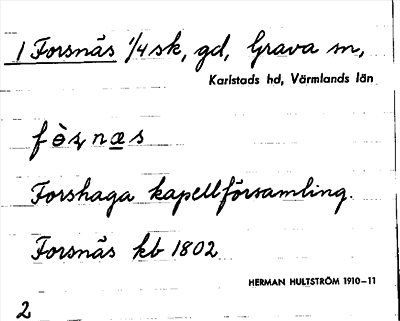 1 Forsnäs 1/4 sk, gd, Grava sn,
Karlstads hd, Värmlands län
fò̀ʂnæs
Forshaga kapellförsamling.
Forsnäs kb 1802
HERMAN HULTSTRÖM 1910–11
2